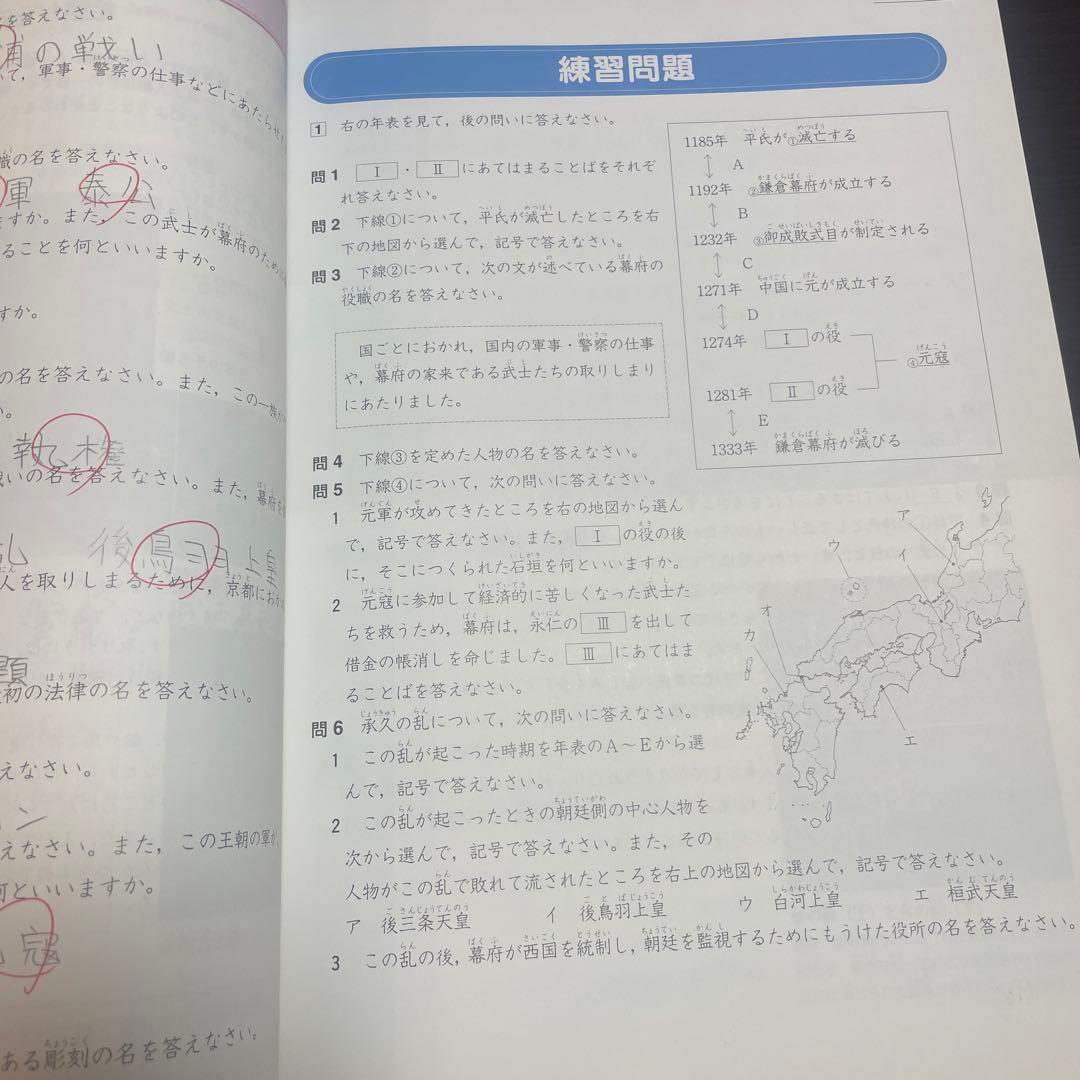 を答えなさい。
浦の戦い
て，軍事・警察の仕事などにあたらせ
職の名を答えなさい。
軍 泰公
ますか。また，この武士が幕府のため
ることを何といいますか。
すか。
の名を答えなさい。また，この一族が
か。
執権
戦いの名を答えなさい。また，幕府を
乱 後鳥羽上皇
人を取りしまるために，京都におか
題
初の法律の名を答えなさい。
えなさい。
ン
えなさい。また，この王朝の軍が
何といいますか。
寇
ある彫刻の名を答えなさい。
練習問題
1 右の年表を見て，後の問いに答えなさい。
問1 Ⅰ・Ⅱにあてはまることばをそれぞ
れ答えなさい。
問2 下線①について，平氏が滅亡したところを右
下の地図から選んで，記号で答えなさい。
問3 下線②について，次の文が述べている幕府の
役職の名を答えなさい。
国ごとにおかれ，国内の軍事・警察の仕事
や，幕府の家来である武士たちの取りしまり
にあたりました。
問4 下線③を定めた人物の名を答えなさい。
問5 下線④について，次の問いに答えなさい。
1 元軍が攻めてきたところを右の地図から選ん
で，記号で答えなさい。また，Ⅰの役の後
に，そこにつくられた石垣を何といいますか。
2 元寇に参加して経済的に苦しくなった武士た
ちを救うため，幕府は，永仁のⅢを出して
借金の帳消しを命じました。Ⅲにあてはま
ることばを答えなさい。
問6 承久の乱について，次の問いに答えなさい。
1 この乱が起こった時期を年表のA～Eから選
んで，記号で答えなさい。
2 この乱が起こったときの朝廷側の中心人物を
次から選んで，記号で答えなさい。また，その
人物がこの乱で敗れて流されたところを右上の地図から選んで，記号で答えなさい。
ア 後三条天皇 イ 後鳥羽上皇 ウ 白河上皇 エ 桓武天皇
3 この乱の後，幕府が西国を統制し，朝廷を監視するためにもうけた役所の名を答えなさい。
1185年 平氏が①滅亡する
A
1192年 ②鎌倉幕府が成立する
B
1232年 ③御成敗式目が制定される
C
1271年 中国に元が成立する
D
1274年 Ⅰの役
④元寇
1281年 Ⅱの役
E
1333年 鎌倉幕府が滅びる
ア
イ
ウ
オ
カ
エ